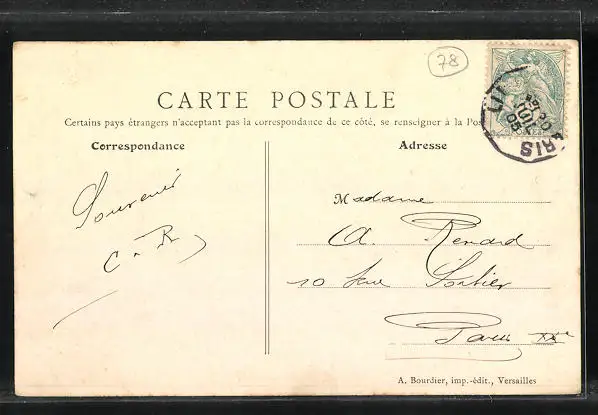 78
CARTE POSTALE
Certains pays étrangers n'acceptant pas la correspondance de ce côté, se renseigner à la Pos
Correspondance
Adresse
Souvenir
Madame
A. Renard
10 rue Sorbier
Paris XXe
A. Bourdier, imp.-édit., Versailles